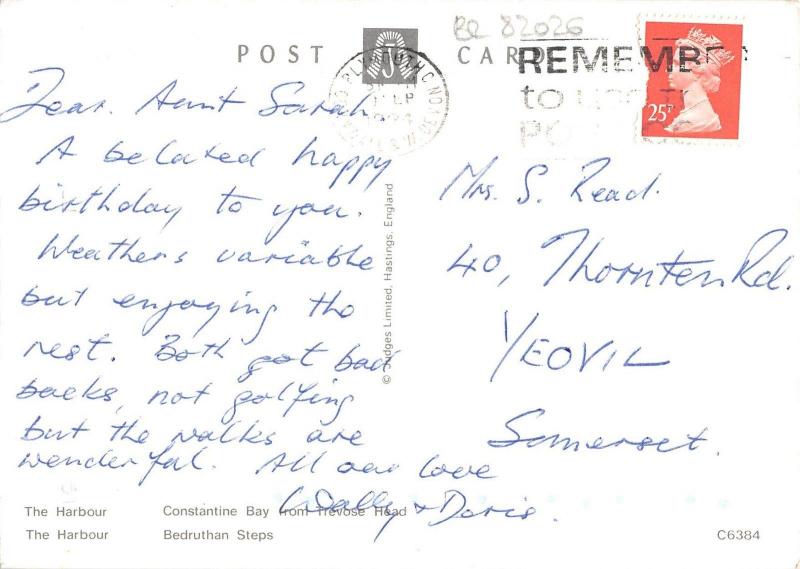 RR 82026
POST CARD
REMEMBE
to use
PO
25P
Dear Aunt Sarah
A belated happy
birthday to you.
Weathers variable
but enjoying the
rest. Both got bad
backs, not golfing
but the walks are
wonderful. All our love
Wally & Doris.
Mrs. S. Read.
40, Thornton Rd.
YEOVIL
Somerset.
© Judges Limited, Hastings, England
The Harbour Constantine Bay from Trevose Head
The Harbour Bedruthan Steps
C6384